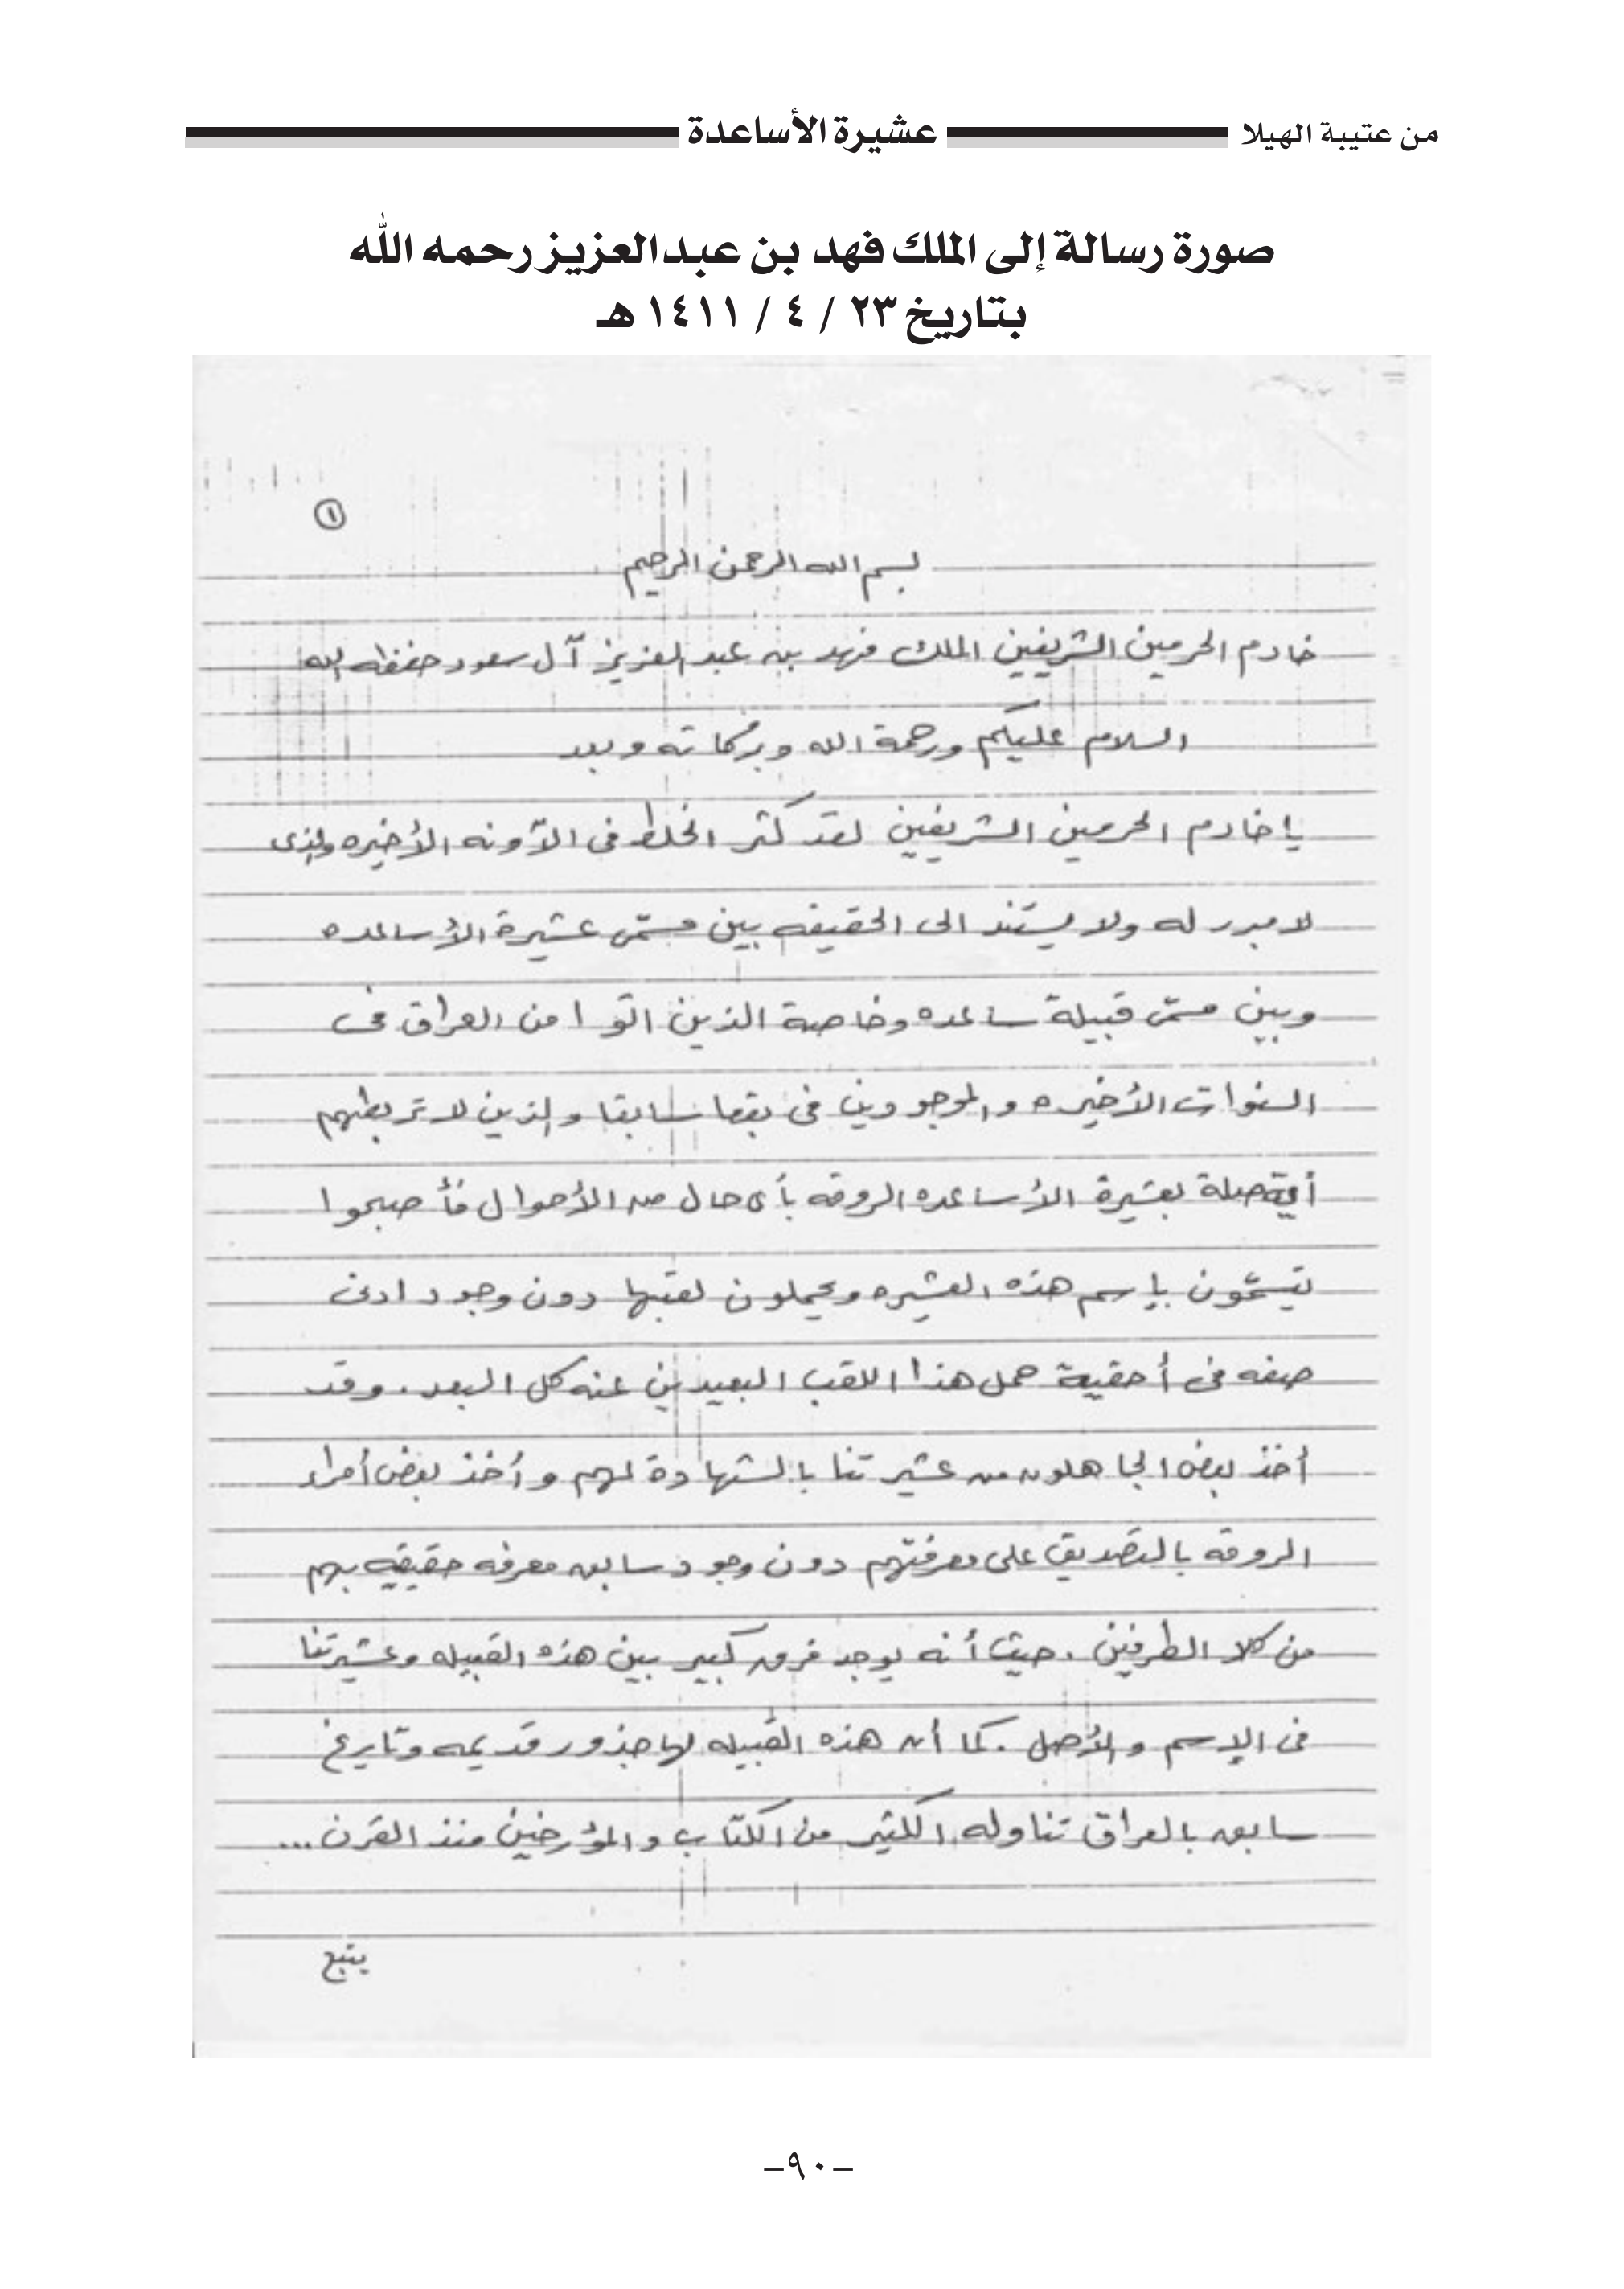 من عتيبة الهيلا
عشيرة الأساعدة
صورة رسالة إلى الملك فهد بن عبدالعزيز رحمه الله
بتاريخ ٢٣ / ٤ / ١٤١١ هـ
١
بسم الله الرحمن الرحيم
خادم الحرمين الشريفين الملك فهد بن عبد العزيز آل سعود حفظه الله
السلام عليكم ورحمة الله وبركاته وبعد
يا خادم الحرمين الشريفين لقد كثر الخلط فى الآونه الأخيره والذى
لا مبرر له ولا يستند الى الحقيقه بين مسمّى عشيرة الأساعده
وبين مسمّى قبيلة ساعده وخاصة الذين اتوا من العراق فى
السنوات الأخيره والموجودين فى بقعا سابقا والذين لا تربطهم
أية صلة بعشيرة الأساعده الروقه بأى حال من الأحوال فأصبحوا
يتسمّون بإسم هذه العشيره ويحملون لقبها دون وجود ادنى
صفه فى أحقية حمل هذا اللقب البعيدين عنه كل البعد . وقد
أخذ بعض الجاهلون من عشيرتنا بالشهادة لهم وأخذ بعض أفراد
الروقه بالتصديق على معرفتهم دون وجود سابق معرفه حقيقيه بهم
من كلا الطرفين . حيث أنه يوجد فرق كبير بين هذه القبيله وعشيرتنا
فى الإسم والأصل . كما أن هذه القبيله لها جذور قديمه وتاريخ
سابق بالعراق تناوله الكثير من الكتاب والمؤرخين منذ القرن ...
يتبع
-٩٠-